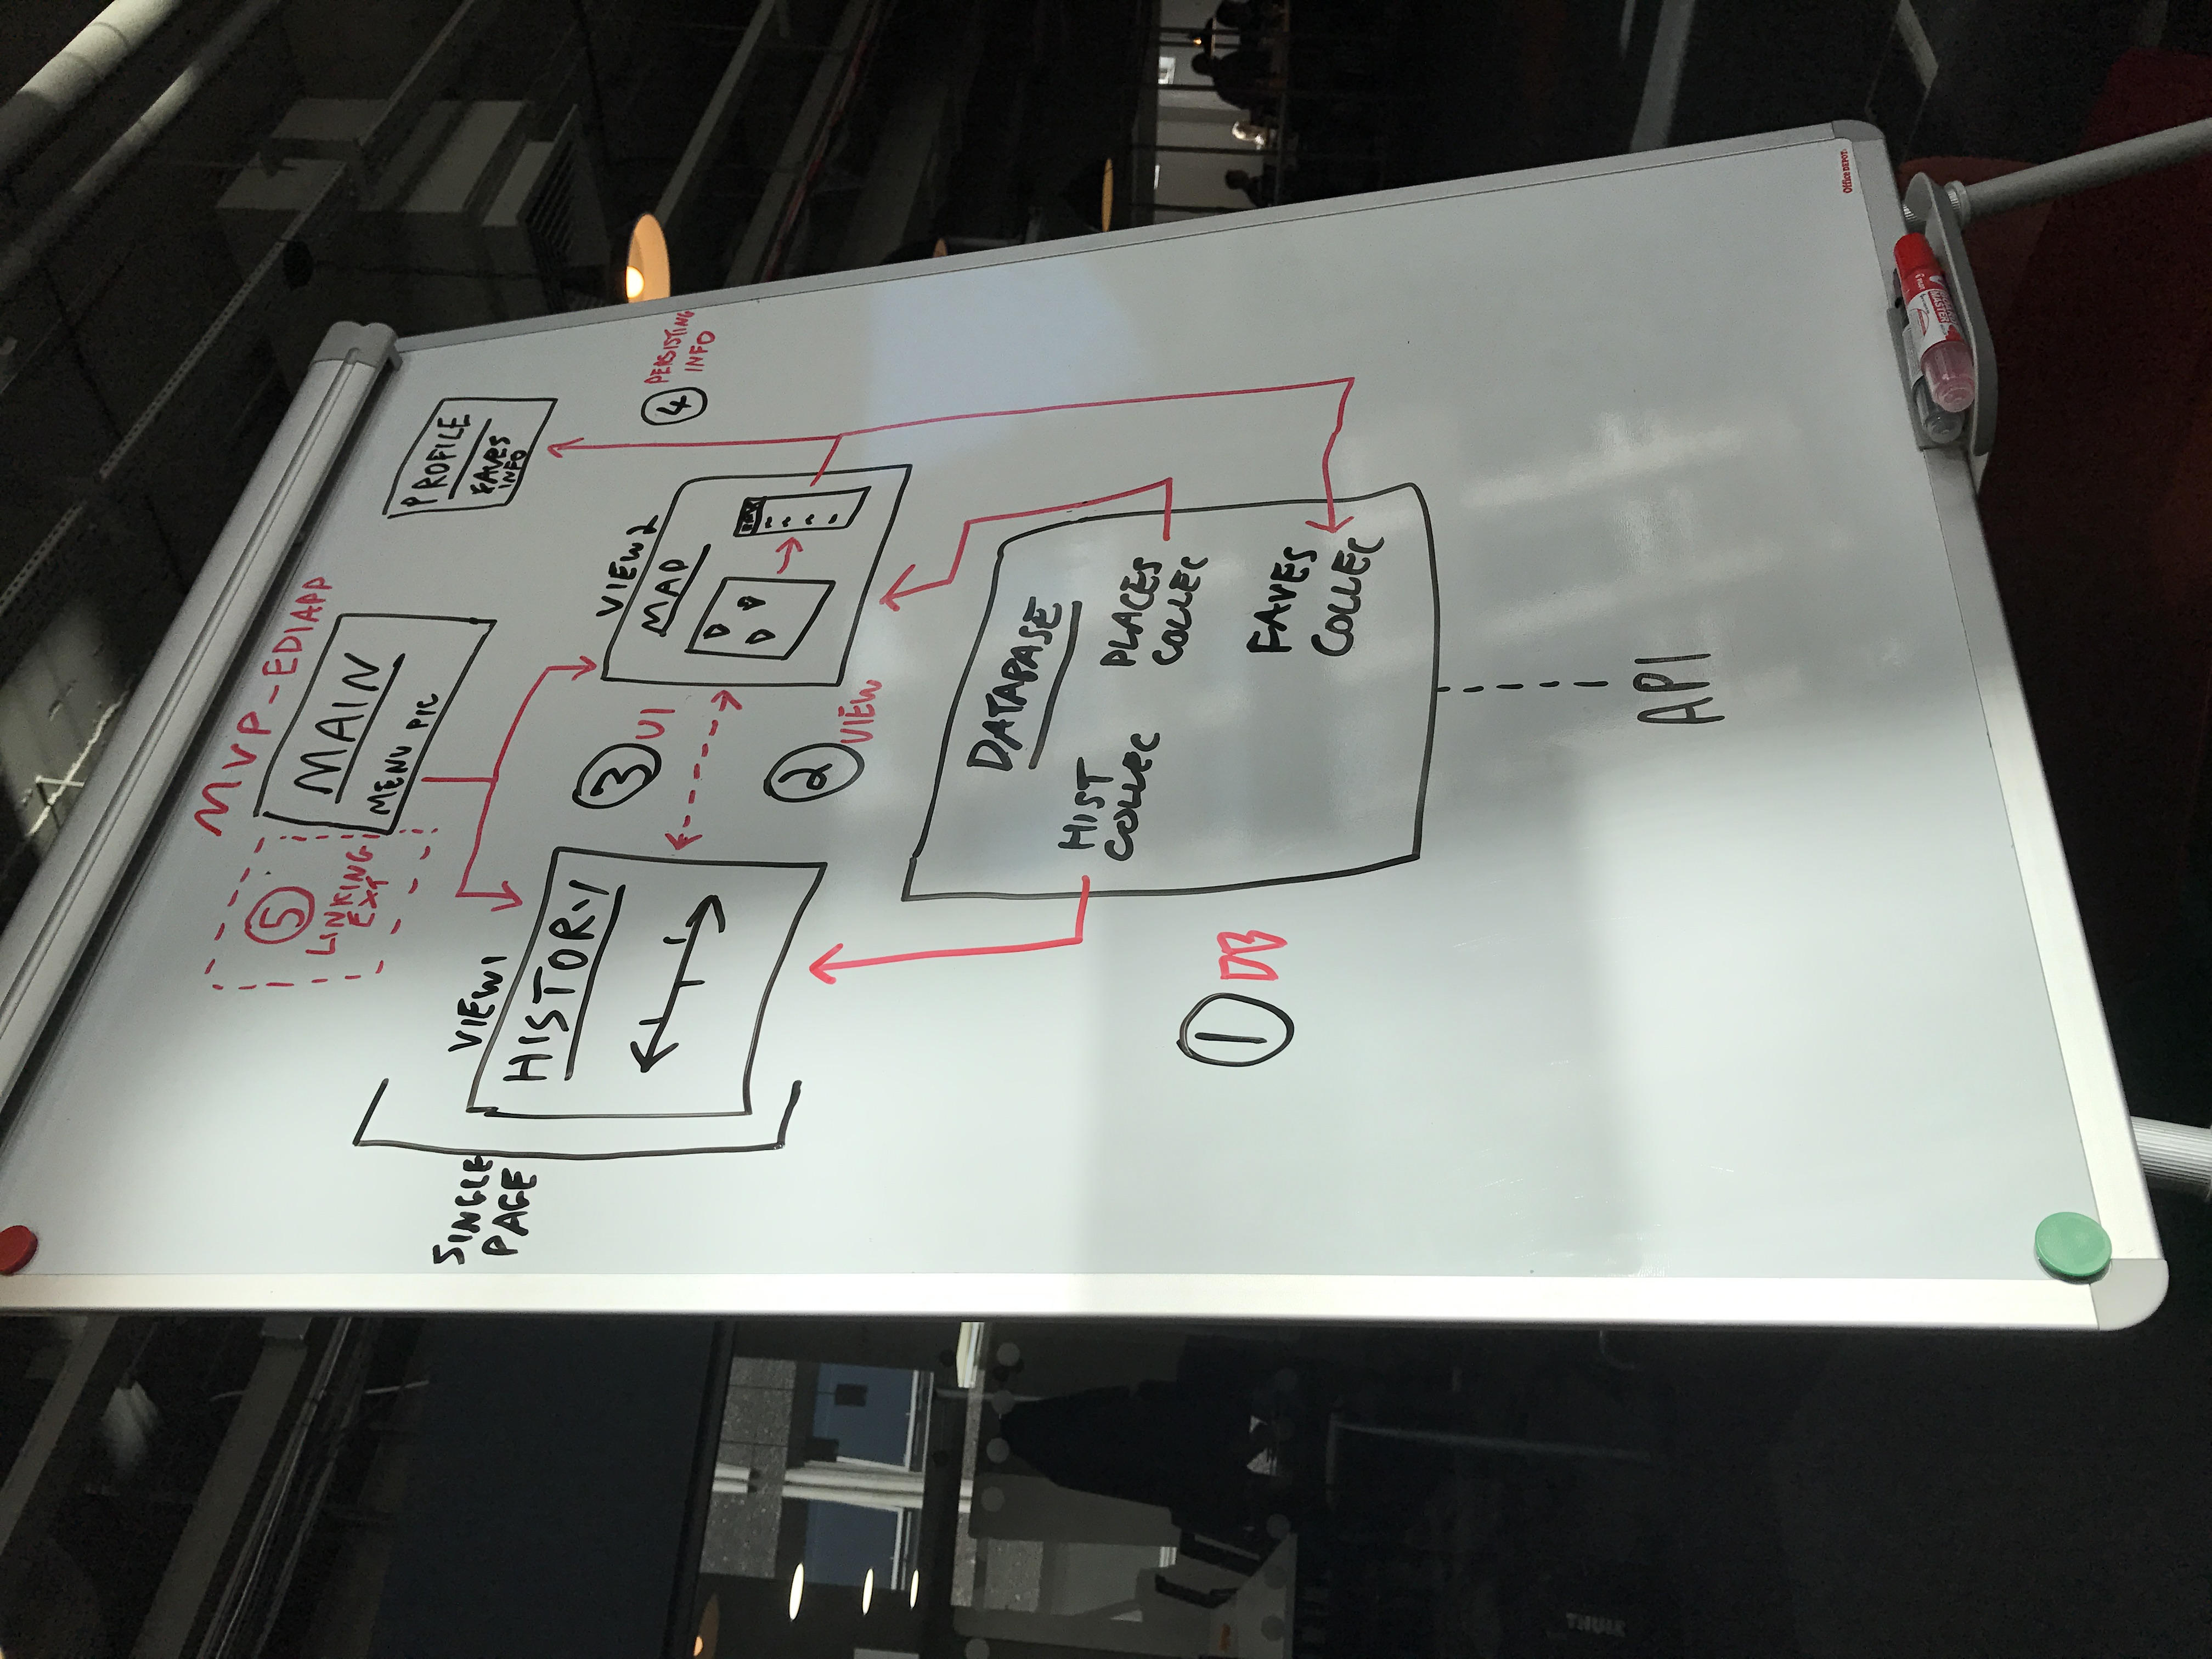 MVP-EDIAPP
5
LINKING
EXT
MAIN
MENU PIC
PROFILE
FAVES
INFO
SINGLE
PAGE
VIEW1
HISTORY
3 UI
VIEW2
MAP
4 PERSISTING
INFO
2 VIEW
DATABASE
HIST
COLLEC
PLACES
COLLEC
1 DB
FAVES
COLLEC
API
Office DEPOT
MASTER